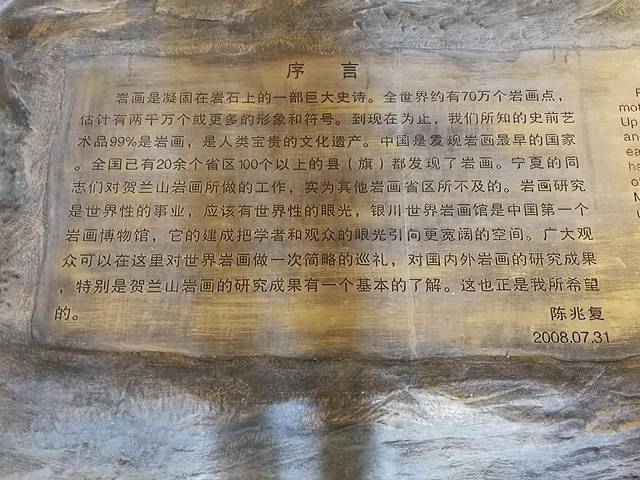 序 言
岩画是凝固在岩石上的一部巨大史诗。全世界约有70万个岩画点，
估计有两千万个或更多的形象和符号。到现在为止，我们所知的史前艺
术品99%是岩画，是人类宝贵的文化遗产。中国是发现岩画最早的国家
。全国已有20余个省区100个以上的县（旗）都发现了岩画。宁夏的同
志们对贺兰山岩画所做的工作，实为其他岩画省区所不及的。岩画研究
是世界性的事业，应该有世界性的眼光，银川世界岩画馆是中国第一个
岩画博物馆，它的建成把学者和观众的眼光引向更宽阔的空间。广大观
众可以在这里对世界岩画做一次简略的巡礼，对国内外岩画的研究成果
，特别是贺兰山岩画的研究成果有一个基本的了解。这也正是我所希望
的。
陈兆复
2008.07.31
Up
an